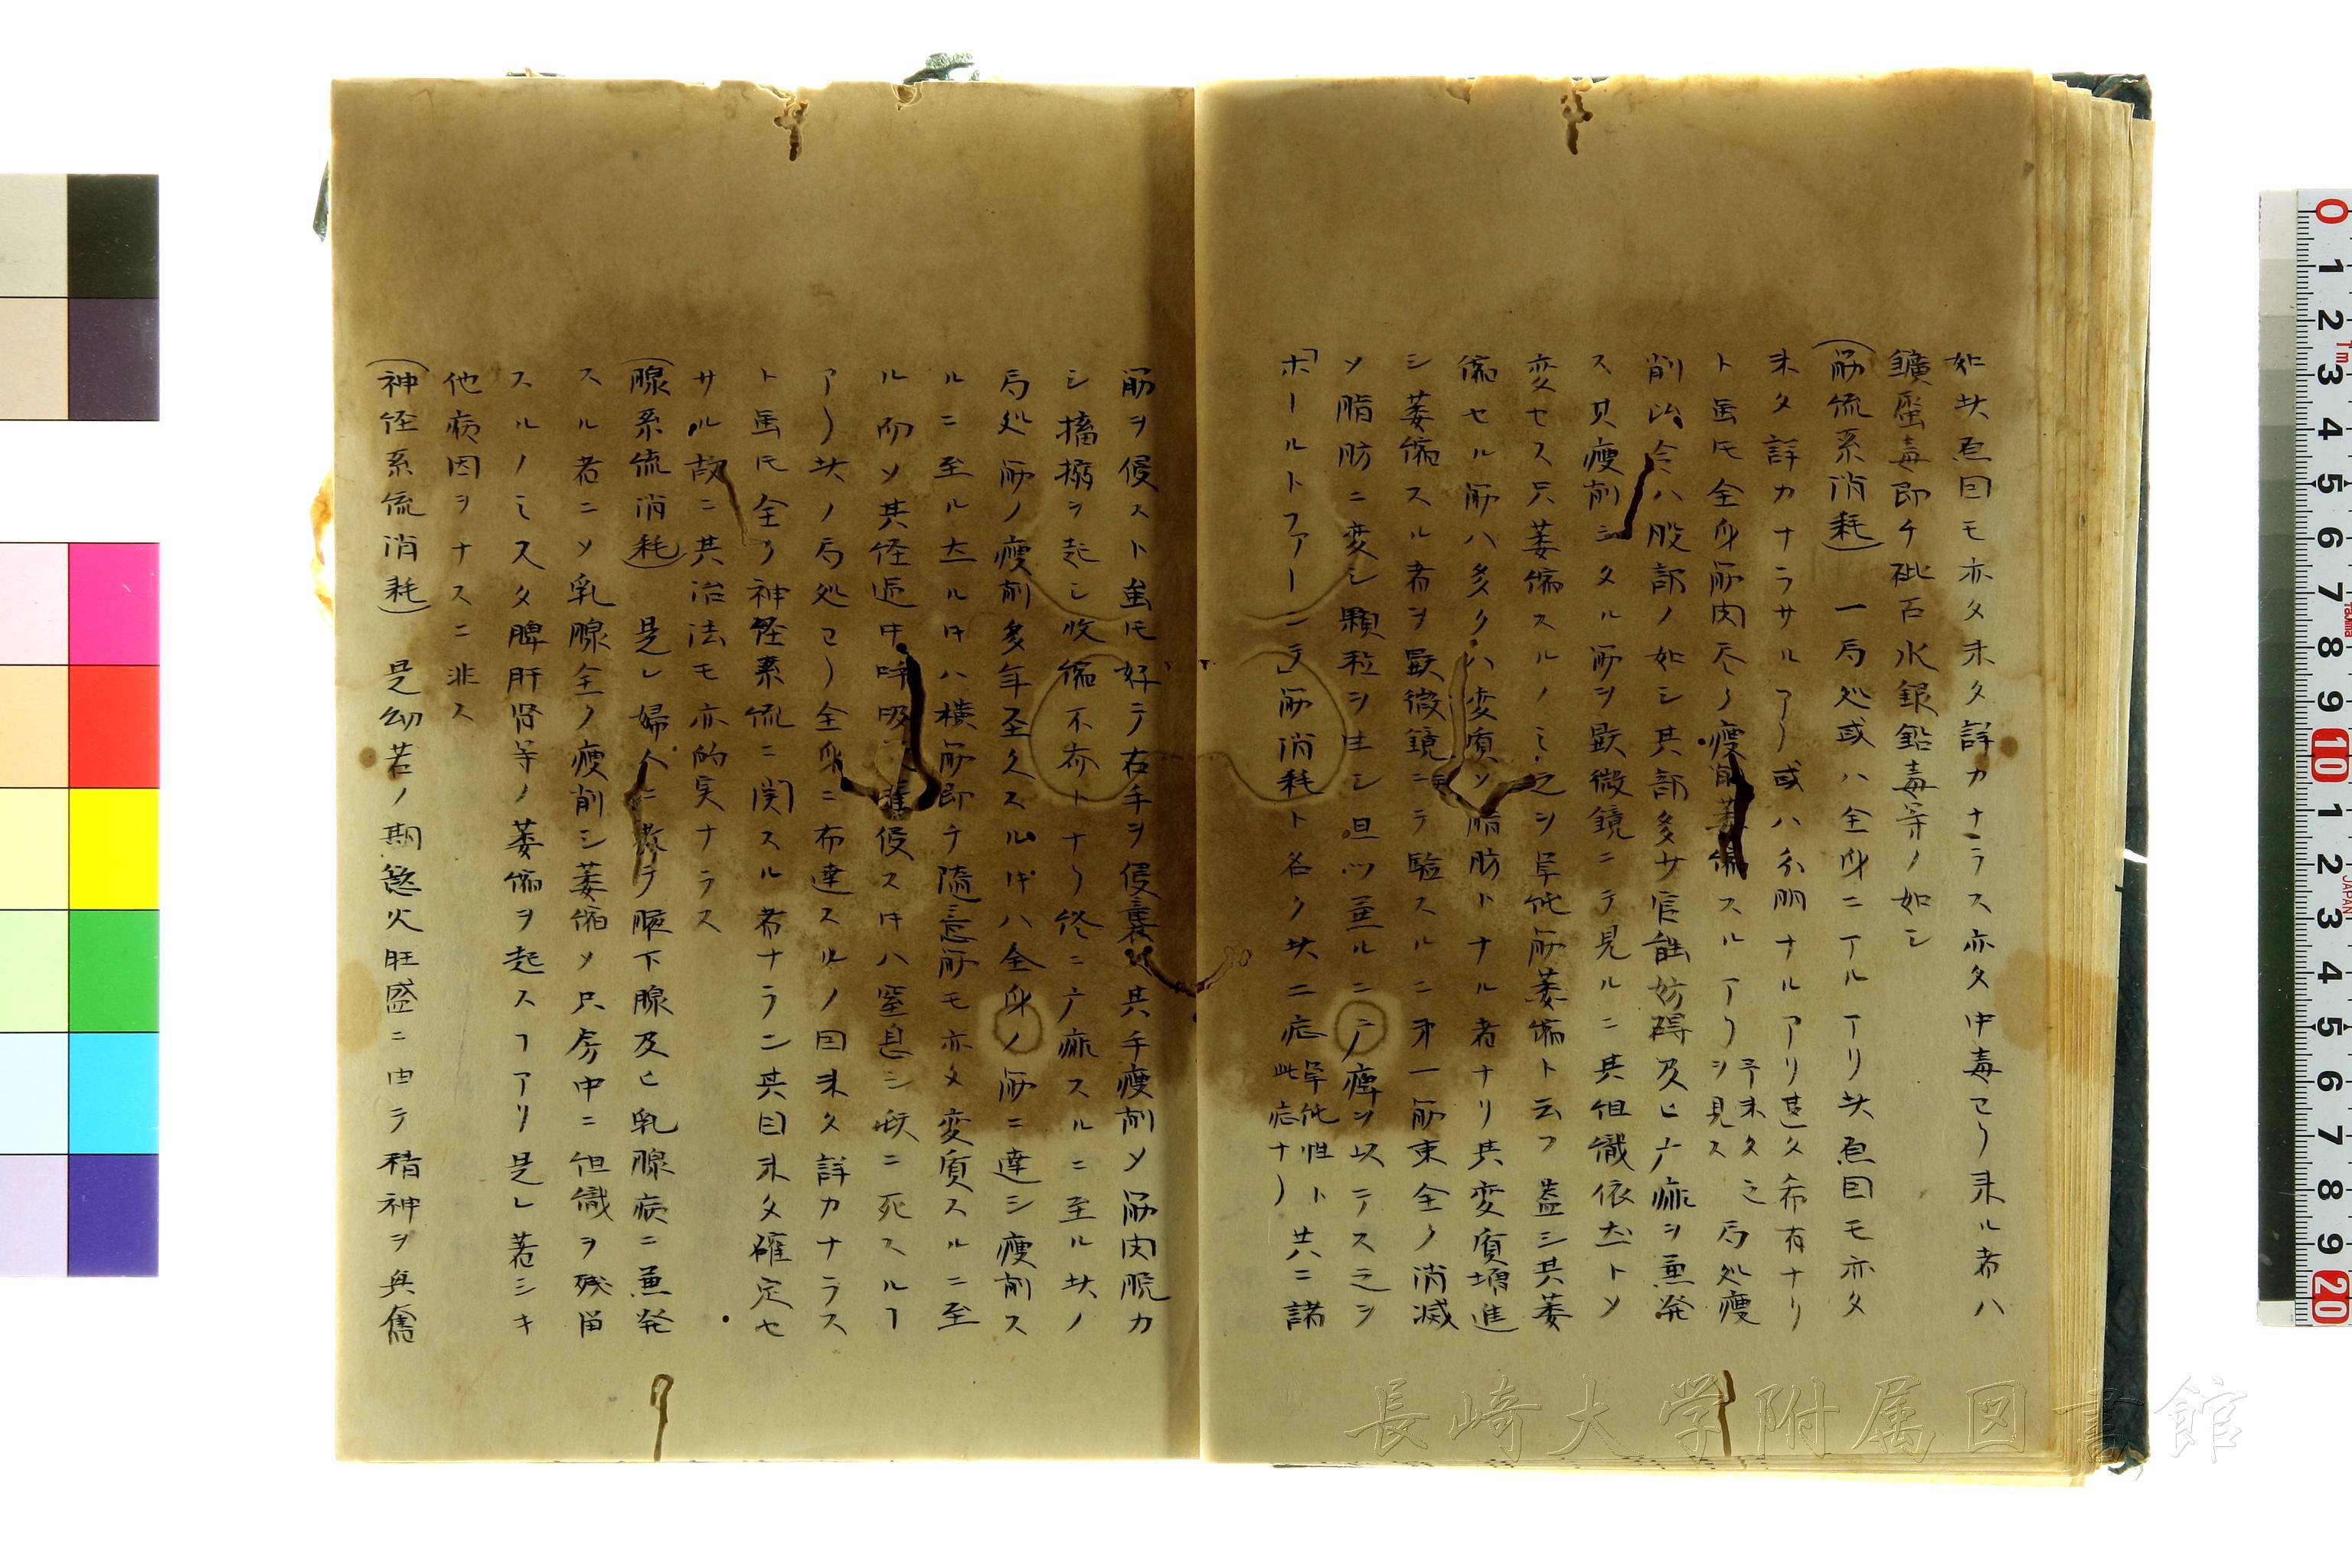 如此原因モ亦タ未タ詳カナラス亦タ中毒ヨリ来ル者ハ
鑛屬毒即チ砒石水銀鉛毒等ノ如シ
(筋流系消耗) 一局処或ハ全身ニアルアリ此原因モ亦タ
未タ詳カナラサルアリ或ハ分明ナルアリ甚タ希有ナリ
ト虽𪜈全身筋肉尽ク瘦削萎縮スルアリ 予未タ之ヲ見ス 局処瘦
削ハ股部ノ如シ其部多ク官能妨碍及ヒ麻ヲ兼発
ス其瘦削シタル筋ヲ顕微鏡ニテ見ルニ其但織依然トメ
変セス只萎縮スルノミ之ヲ単純筋萎縮ト云フ蓋シ其萎
縮セル筋ハ多クハ変質メ脂肪トナル者ナリ其変質増進
シ萎縮スル者ヲ顕微鏡ニテ験スルニ第一筋束全ク消滅
メ脂肪ニ変シ顆粒ヲ生シ且ツ至ルニノ痺ヲ以テス之ヲ
「ホールトファーンデ」筋消耗ト名ク此二症 単純性ト此症ナリ 共ニ諸
筋ヲ侵スト虽𪜈好テ右手ヲ侵襲シ其手瘦削メ筋肉脱カ
シ搐搦ヲ起シ收縮不齐トナリ終ニ麻スルニ至ル此ノ
局処筋ノ瘦削多年至久スル时ハ全身ノ筋ニ達シ瘦削ス
ルニ至ル然ル时ハ横筋即チ随意筋モ亦タ変質スルニ至
ル而メ其径過中呼吸筋侵ス时ハ窒息シ終ニ死スルヿ
アリ此ノ局処ヨリ全身ニ布達スルノ因未タ詳カナラス
ト虽𪜈全ク神経系流ニ関スル者ナラン其因未タ確定セ
サル故ニ其治法モ亦的実ナラス
(腺系流消耗) 是レ婦人ニ於テ腋下腺及ヒ乳腺病ニ兼発
スル者ニメ乳腺全ク瘦削シ萎縮メ只房中ニ但織ヲ残留
スルノミ又タ脾肝腎等ノ萎縮ヲ起スヿアリ是レ著シキ
他病因ヲナスニ非ス
(神径系流消耗) 是幼若ノ期慾火旺盛ニ由テ精神ヲ興奮
長崎大学附属図書館
0 1 2 3 4 5 6 7 8 9 10 1 2 3 4 5 6 7 8 9 20
JAPAN